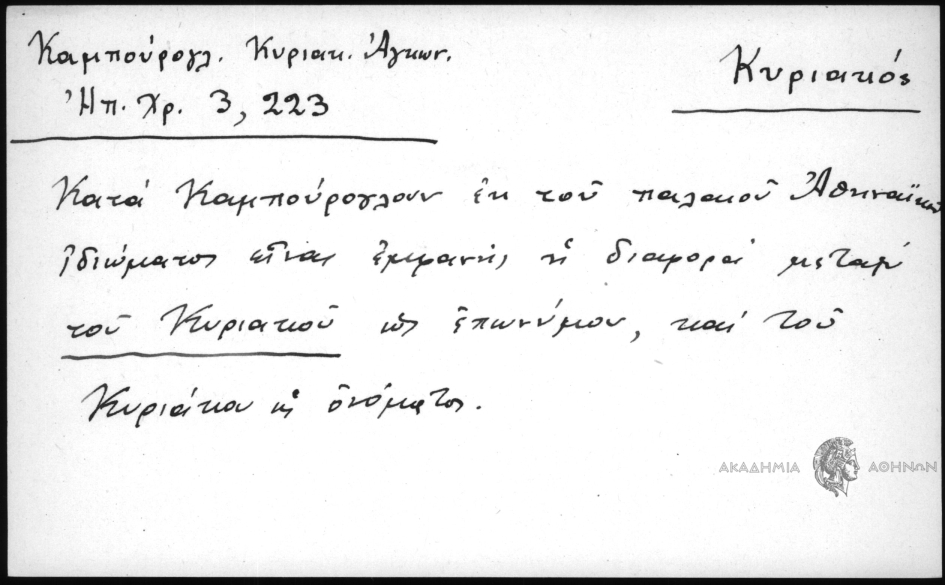 Καμπούρογλ. Κυριακ. Ἀγκων.
Κυριακός
Ἠπ. Χρ. 3, 223
Κατά Καμπούρογλουν ἐκ τοῦ παλαιοῦ Ἀθηναϊκοῦ
ἰδιώματος εἶναι ἐμφανής ἡ διαφορά μεταξύ
τοῦ Κυριακοῦ ὡς ἐπωνύμου, καί τοῦ
Κυριάκου ὡς ὀνόματος.
ΑΚΑΔΗΜΙΑ ΑΘΗΝΩΝ